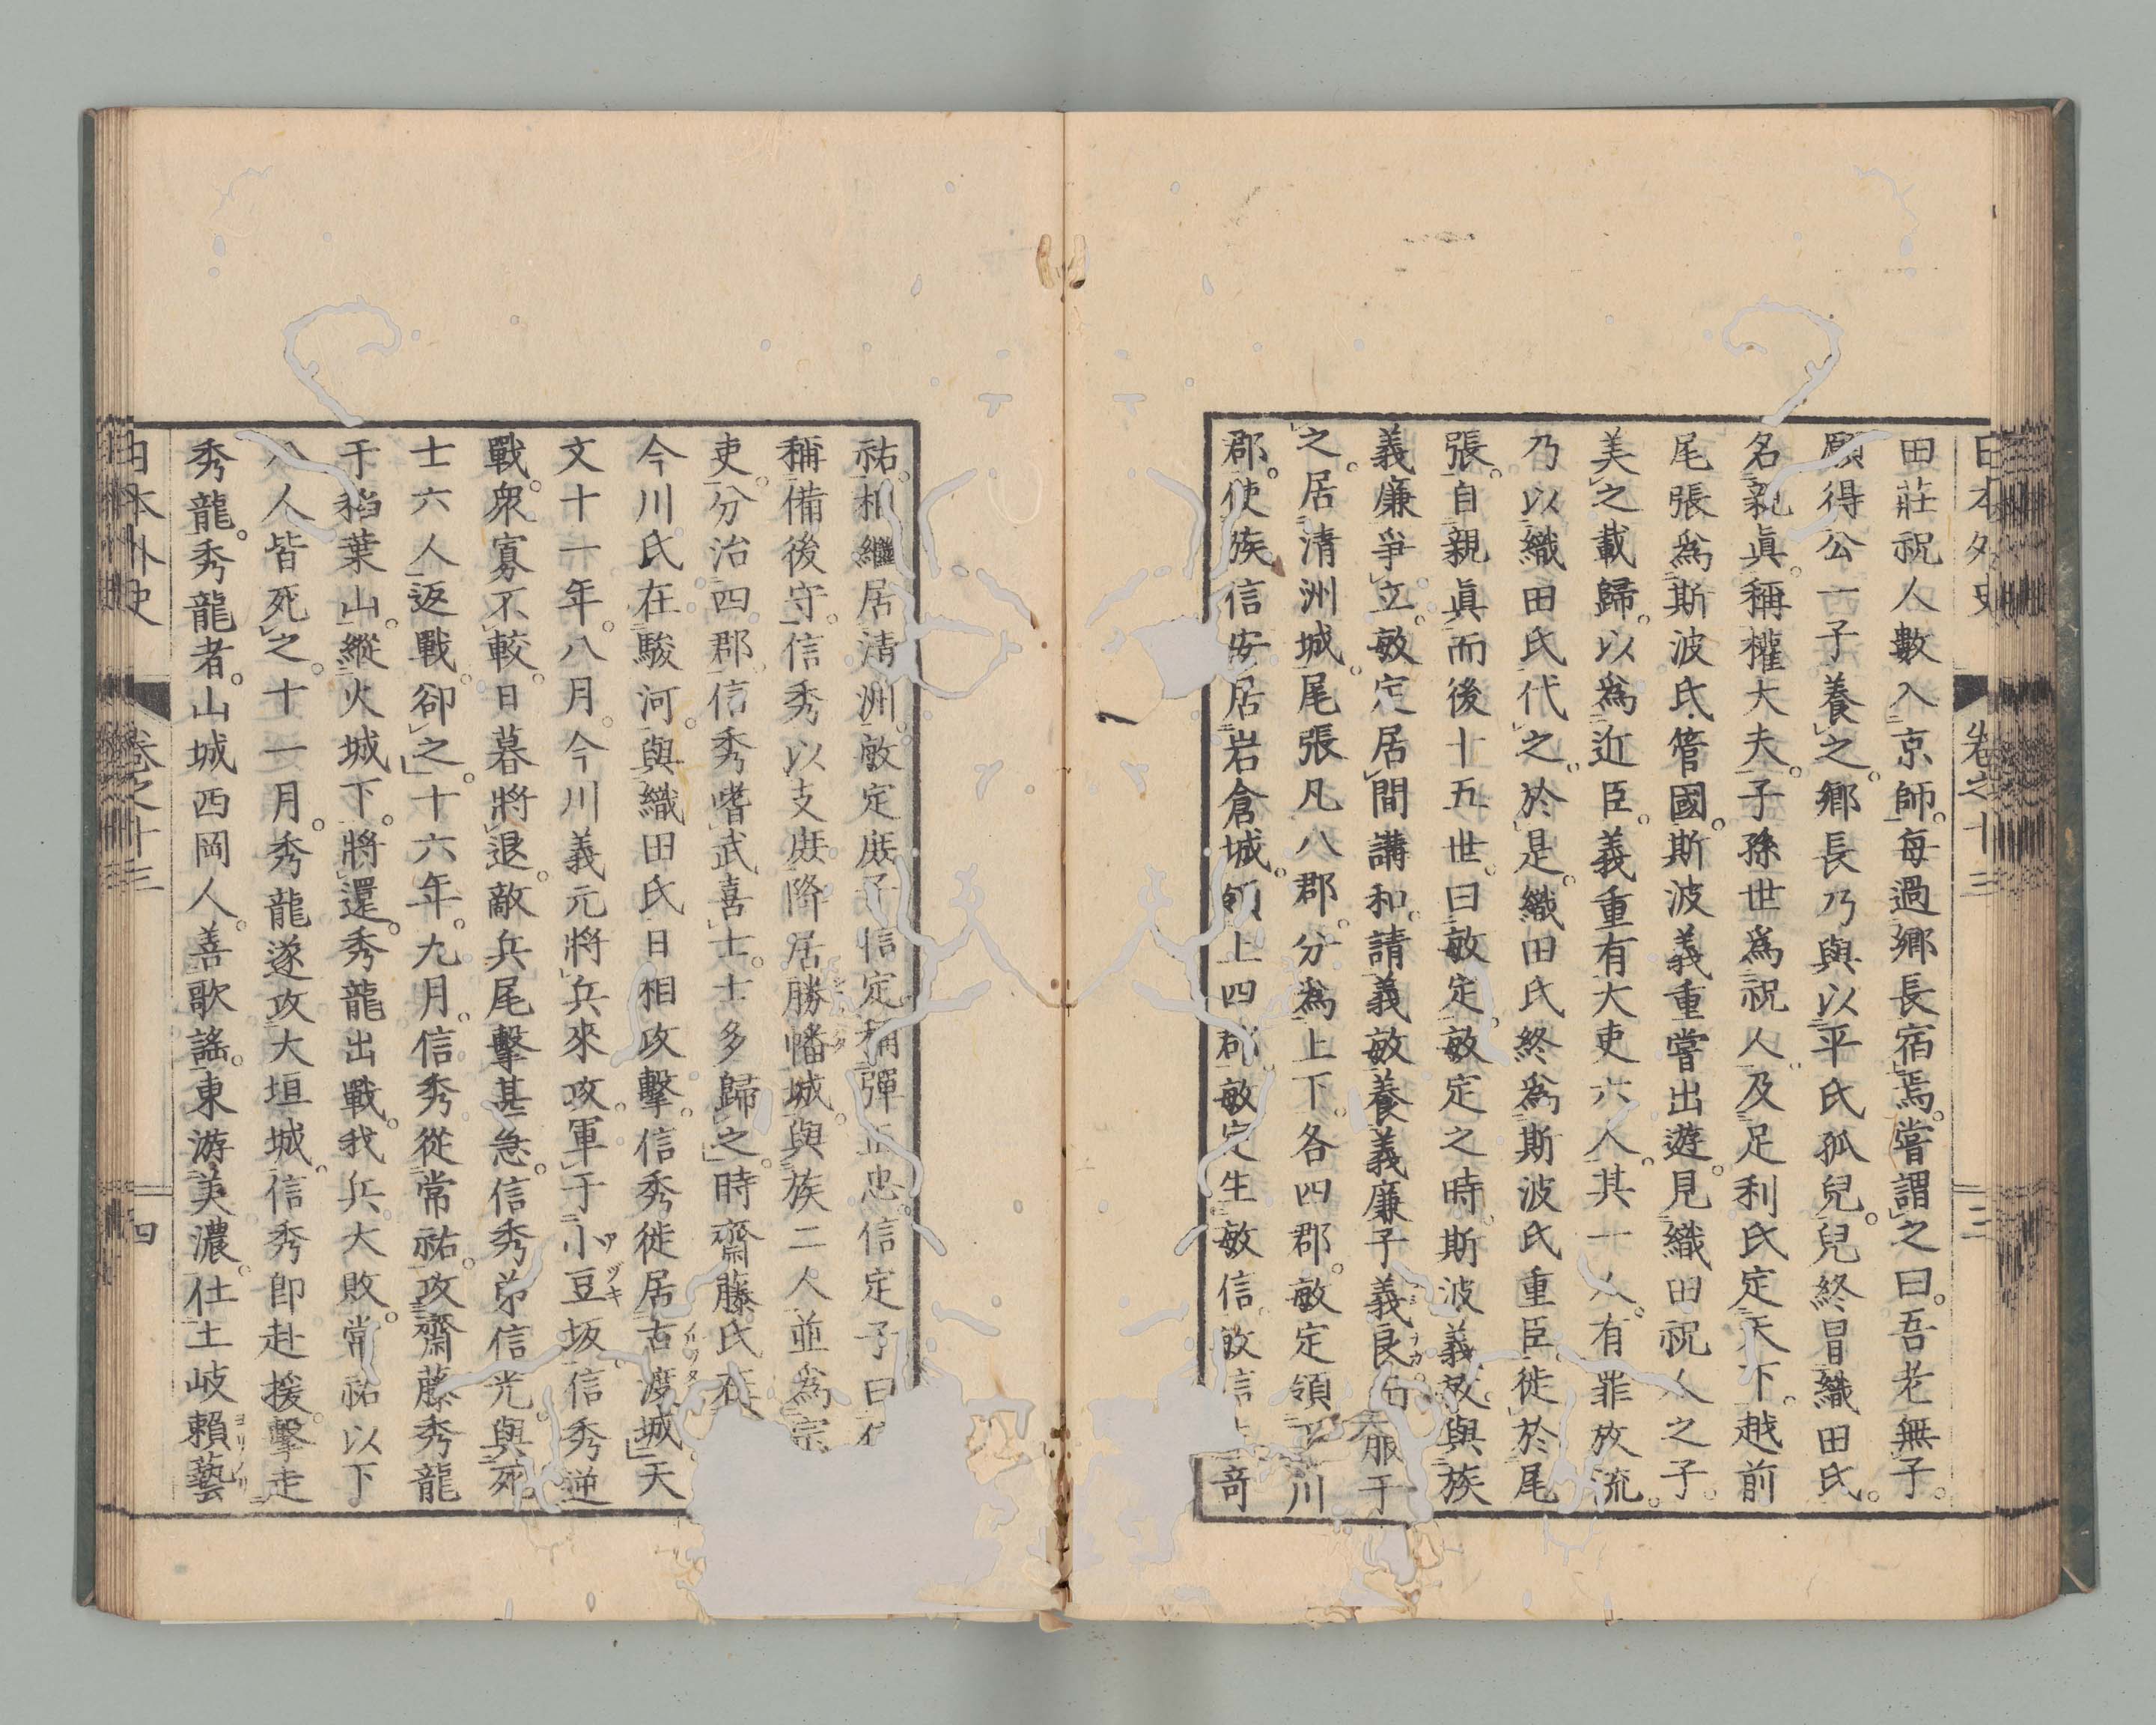 日本外史 卷之十三 三
田莊祝人數入京師。每過鄉長宿焉。嘗謂之曰。吾老無子。
願得公一子養之。鄉長乃與以平氏孤兒。兒終冒織田氏。
名親眞。稱權大夫。子孫世爲祝人。及足利氏定天下。越前
尾張爲斯波氏管國。斯波義重嘗出遊。見織田祝人之子。
美之載歸。以爲近臣。義重有大吏六人。其一人有罪放流。
乃以織田氏代之。於是。織田氏終爲斯波氏重臣。徙於尾
張。自親眞而後十五世。曰敏定。敏定之時。斯波義敏。與族
義廉爭立。敏定居間講和。請義敏養義廉子義良 服于
之。居清洲城。尾張凡八郡。分爲上下。各四郡。敏定領 川
郡。使族信安居岩倉城。領上四郡。敏定生敏信。敏信 奇
祐。相繼居清洲。敏定庶子信定稱彈正忠。信定子曰
稱備後守。信秀以支庶降居勝幡城。與族二人並爲宗
吏。分治四郡。信秀嗜武喜士。士多歸之。時齋藤氏在
今川氏在駿河。與織田氏日相攻擊。信秀徙居古渡城。天
文十一年。八月。今川義元將兵來攻。軍于小豆坂。信秀逆
戰。衆寡不較。日暮將退。敵兵尾擊甚急。信秀弟信光。與死
士六人返戰。卻之。十六年。九月。信秀從常祐。攻齋藤秀龍
于稻葉山。縱火城下。將還。秀龍出戰。我兵大敗。常祐以下
八人皆死之。十一月。秀龍遂攻大垣城。信秀卽赴援。擊走
秀龍。秀龍者。山城西岡人。善歌謠。東游美濃。仕土岐賴藝
日本外史 卷之十三 四